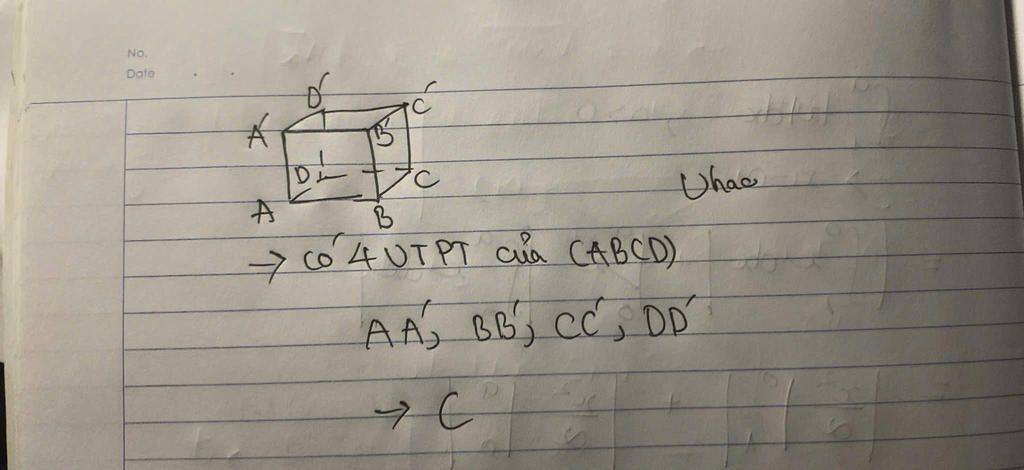 No.
Date
D' C'
A' B'
D C
A B
Uhao
→ có 4 UTPT của (ABCD)
AA', BB', CC', DD'
→ C